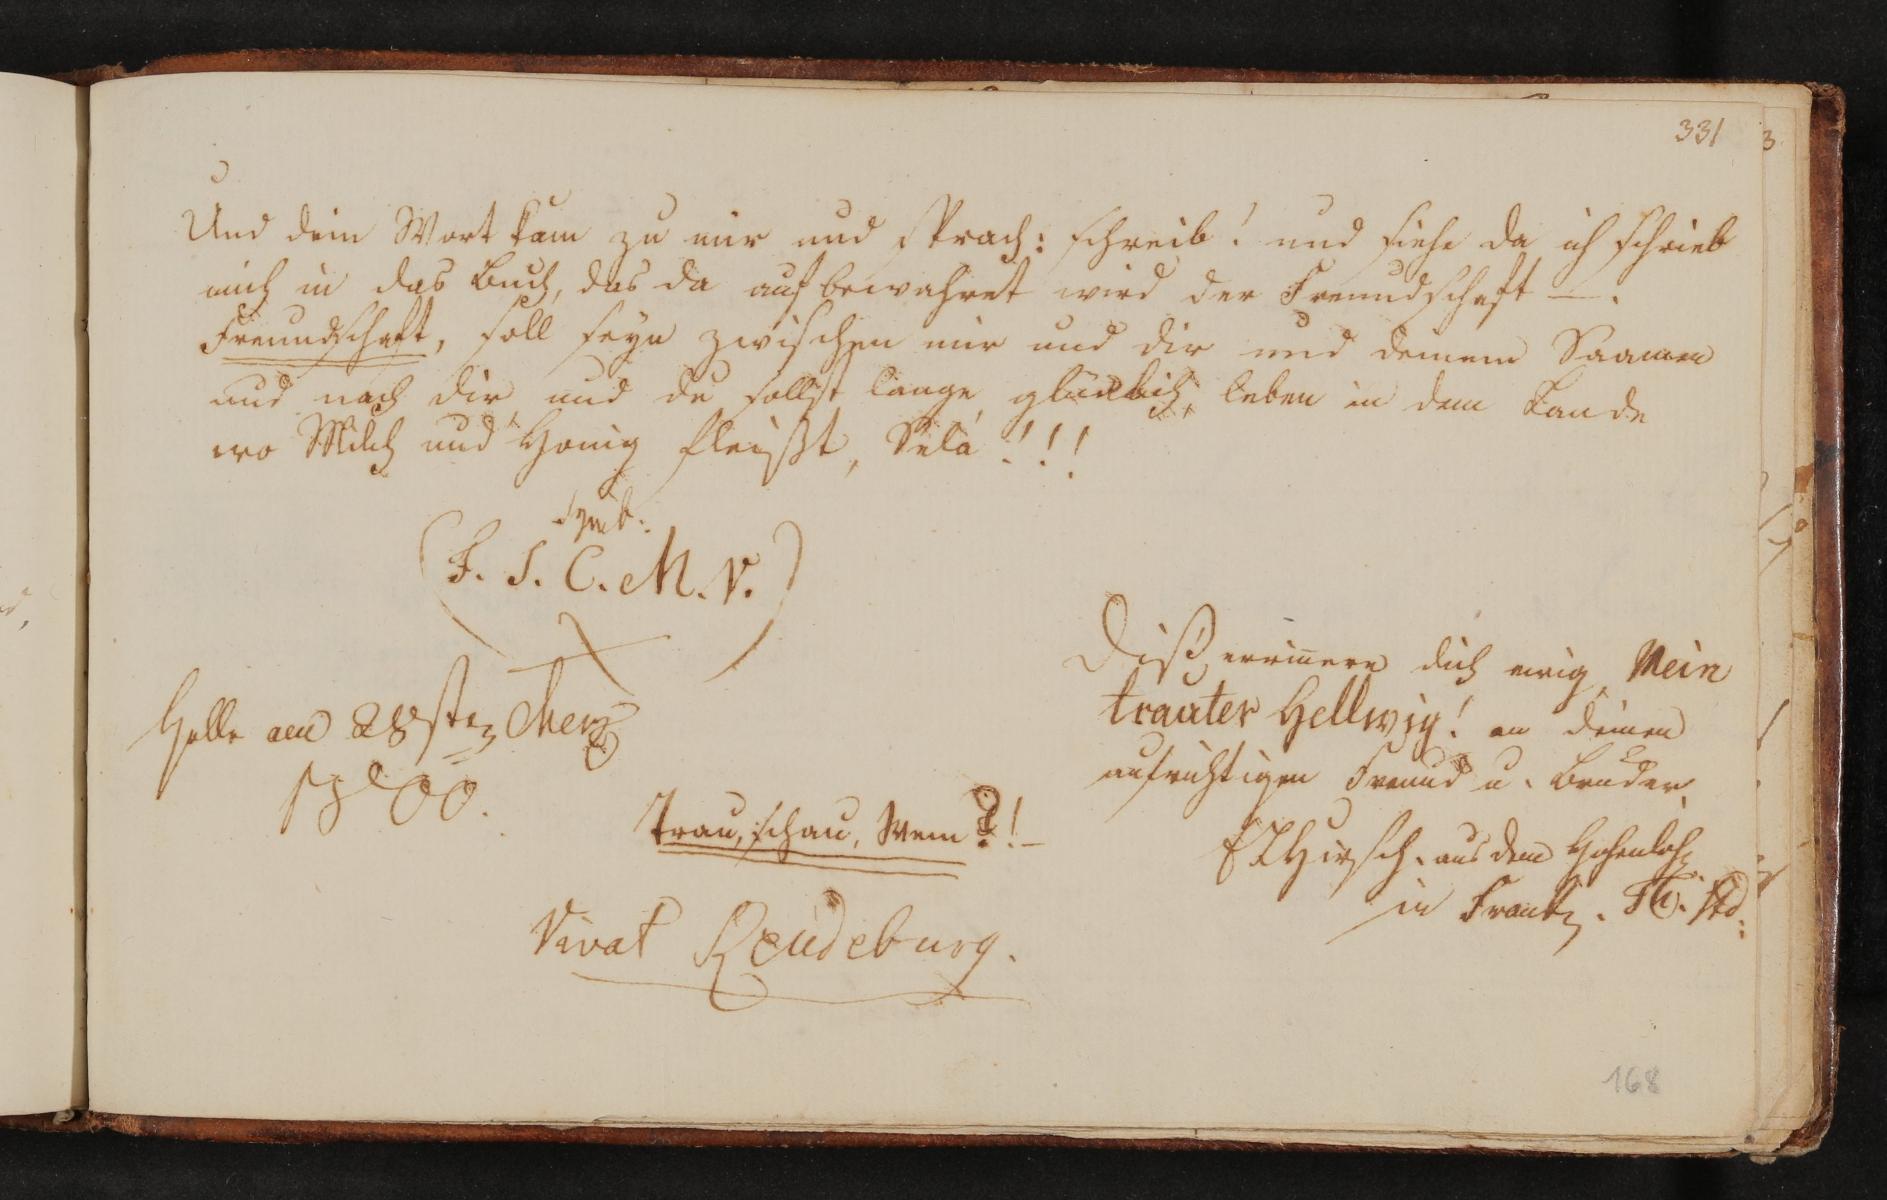 331
Und dein Wort kam zu mir und sprach: schreib! und siehe da ich schrieb
mich in das Buch, das da aufbewahret wird der Freundschaft —.
Freundschaft, soll seyn zwischen mir und dir und deinem Saamen
und nach dir und du sollst lange glücklich leben in dem Lande
wo Milch und Honig fleißt, Sela!!!
Symb.
F. S. C. M. V.
Halle am 28sten Merz
Diß errinnere dich ewig Mein
trauter Hellwig! an deinen
aufrichtigen Freund u. Bruder
Hirsch. aus dem Hohenloh
in Frank. Th. Std.
Trau, schau, Wem?!—
Vivat Rendeburg.
168